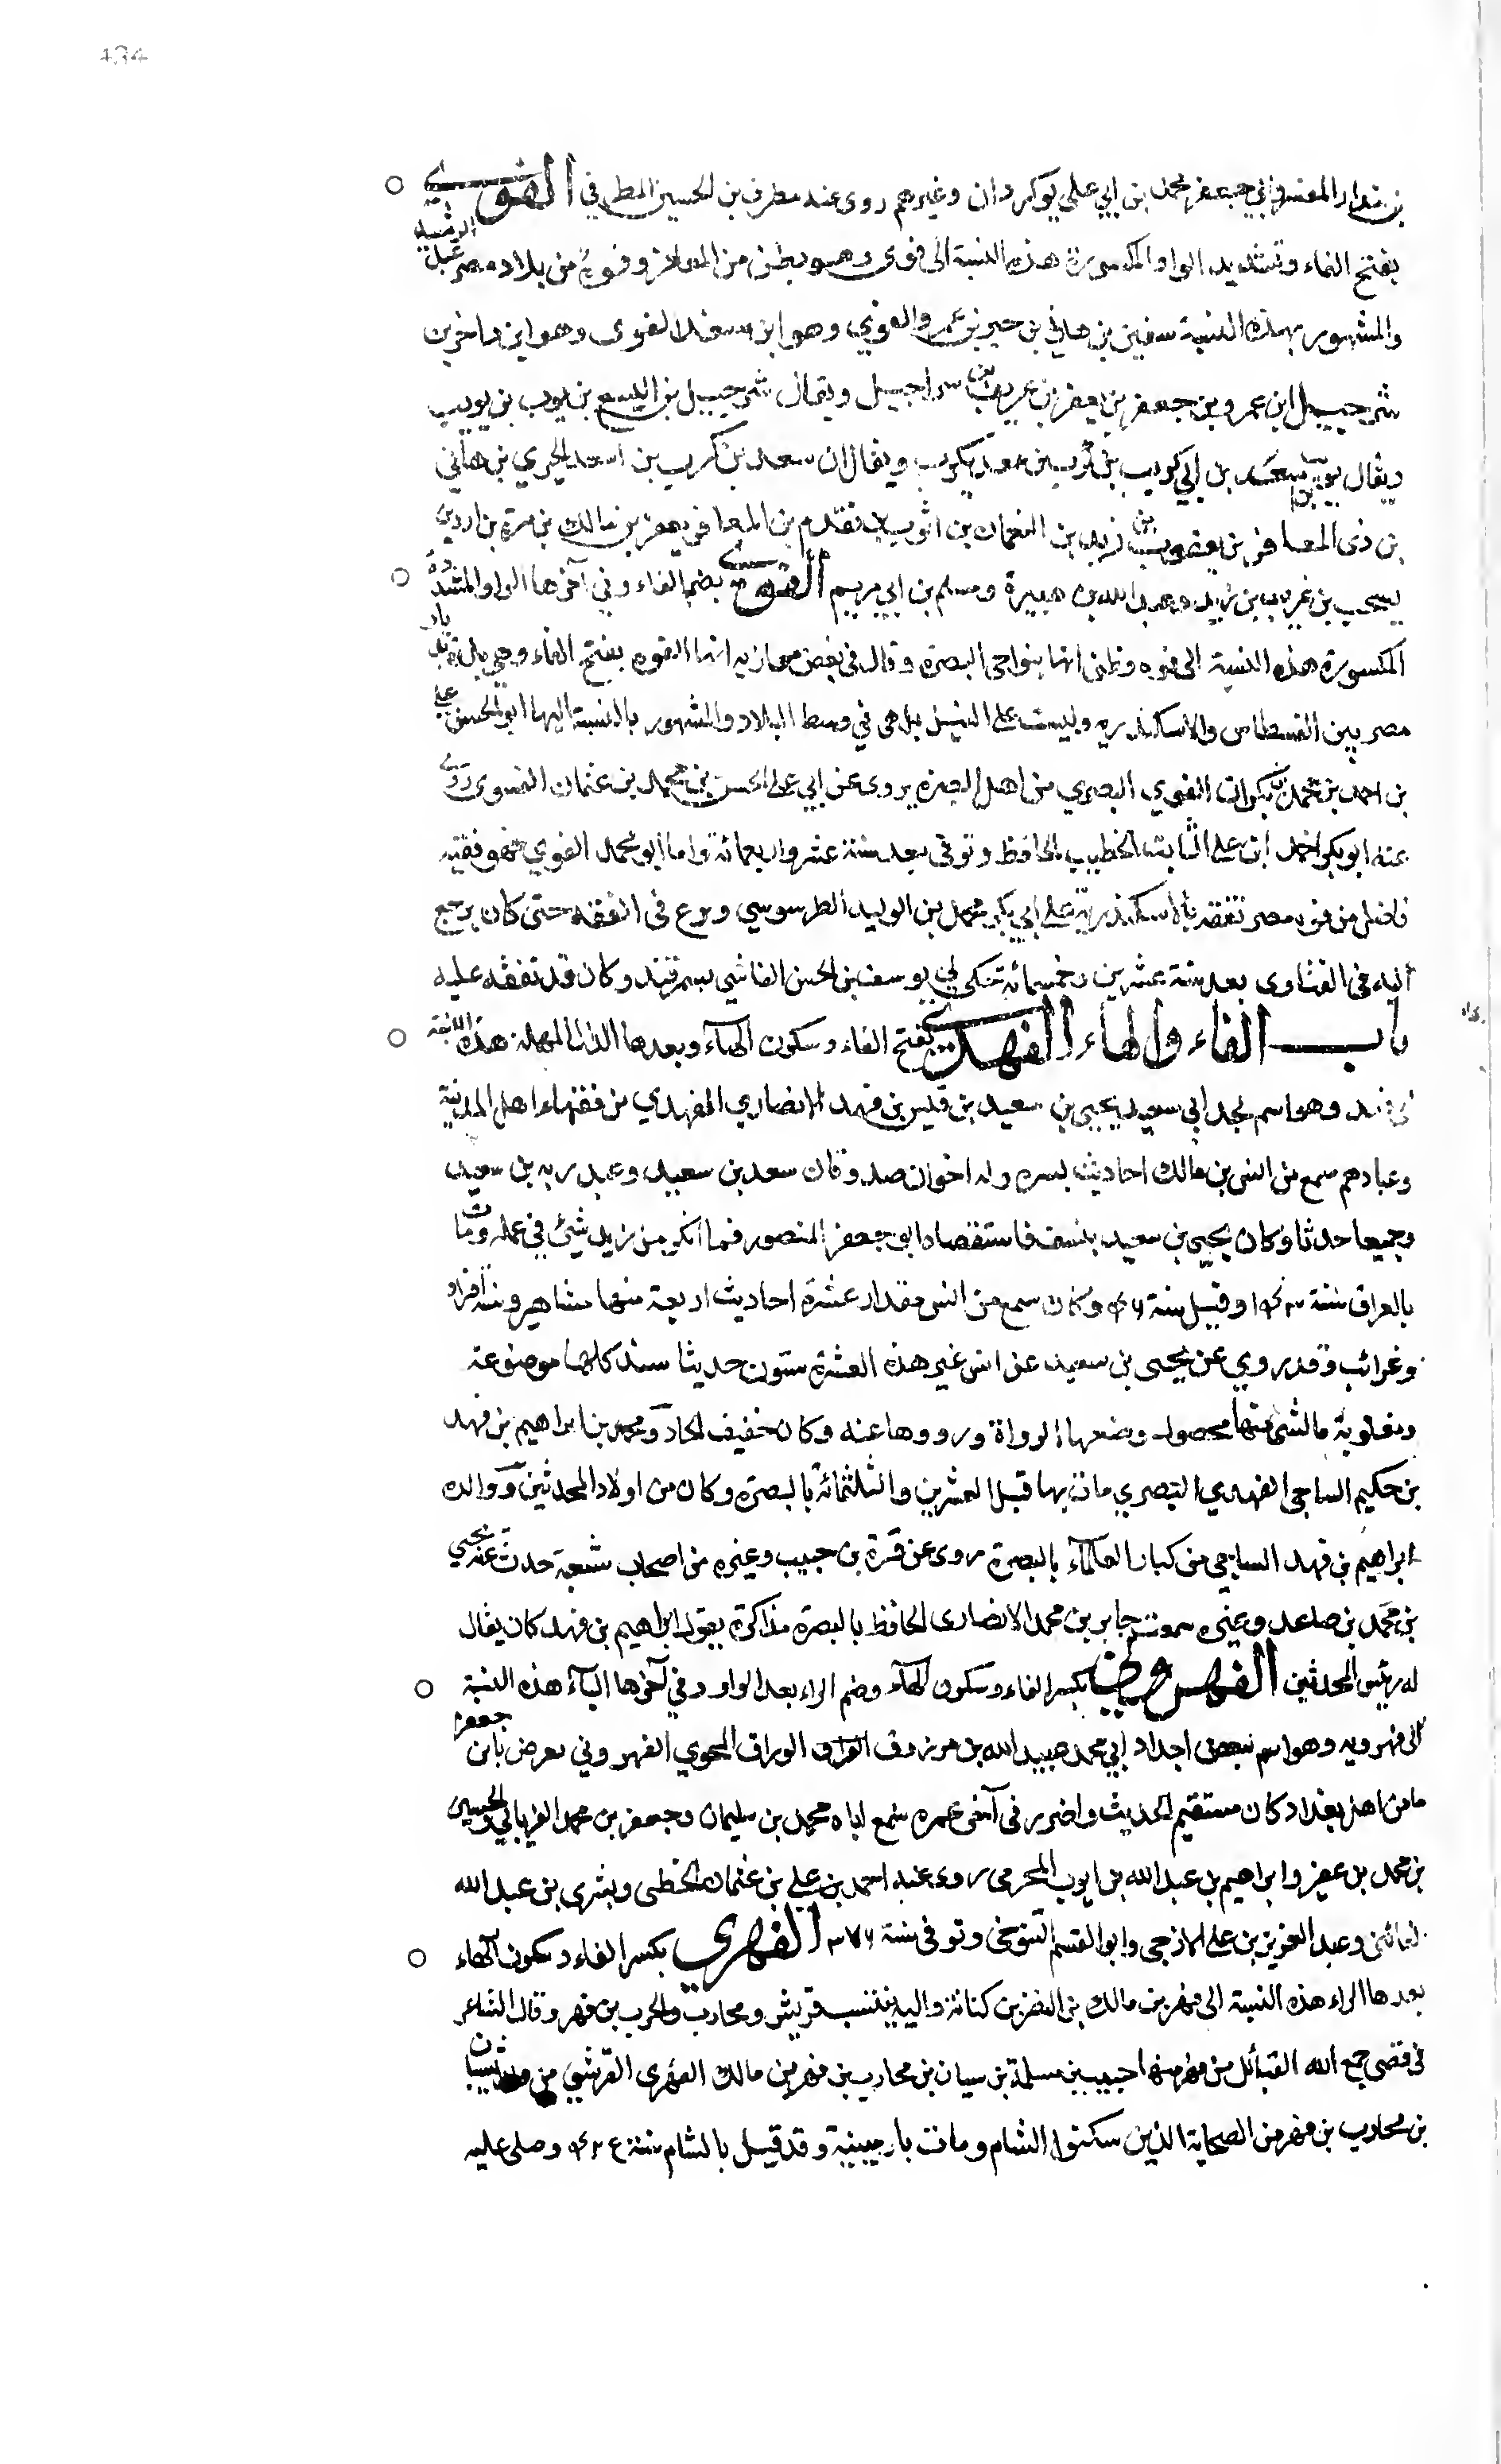 434
بن بندار المفسر وابي جعفر محمد بن ابي علي بوكردان وغيرهم روى عنه مطرف بن الحسين المطرفي الفوي
بفتح الفاء وتشديد الواو المكسورة هذه النسبة الى فوى وهو بطن من المعافر وفوة من بلاد مصر
والمشهور بهذه النسبة سفين بن هاني بن خير بن عمرو الفوي وهو ابن سعد الفوى وهو ابن داخر بن
شرحبيل ابن عمرو بن جعفر بن يعفر بن عريب بن سراحبيل ويقال شرحبيل بن اليسع بن يوب بن يويب
ويقال يوب سعد بن ابي كريب بن ثوب بن معد يكرب ويقال ان سعد بن كرب بن اسعد الحري بن هاني
بن ذى المعافر بن يعقوب بن زيد بن النعمان بن اثوب تقدم بن المعافر بن يعفر بن مالك بن مرة بن ادد بن
يسحب بن عريب بن زيد وعبد الله بن هبيرة ومسلم بن ابي مريم الفوي بضم الفاء وفي آخرها الواو المشددة
المكسورة هذه النسبة الى فوه وظني انها بنواحي البصرة وقال في بعض معازيه انها الفوه بفتح الفاء وهي بليدة
مصر بين الفسطاس والاسكندريه وليست على النيل بل هى في وسط البلاد والمشهور بالنسبة اليها ابو الحسن علي
بن احمد بن محمد بن بكران الفوي البصري من اهل البصرة يروى عن ابي على الحسن بن محمد بن عثمان الفسوى روى
عنه ابو بكر احمد ابن علي الثابت الخطيب الحافظ وتوفي بعد سنة عشر واربعمائة واما ابو محمد الفوي فهو فقيه
فاضل من فوه مصر تفقه بالاسكندرية على ابي بكر محمد بن الوليد الطرسوسي وبرع في الفقه حتى كان يرجع
اليه في الفتاوى بعد سنة عشرين وخمسمائة حكى لي يوسف بن الحسن الفاشي بسمرقند وكان قد تفقه عليه
باب الفاء والهاء الفهدي بفتح الفاء وسكون الهاء وبعدها الدال المهملة هذه النسبة
الى فهد وهو اسم لجد ابي سعيد يحيى بن سعيد بن قيس بن فهد الانصاري الفهدي من فقهاء اهل المدينة
وعبادهم سمع من انس بن مالك احاديث يسيره وله اخوان صدوقان سعد بن سعيد وعبد ربه بن سعيد
وجميعا حدثا وكان يحيى بن سعيد بنسف فاستقضاه ابو جعفر المنصور فما انكر من زيه شئ في عمله ومات
بالعراق سنة ١٤٣ وقيل سنة ٤٦ وكان سمع من انس مقدار عشرة احاديث اربعة منها مشاهير وستة افراد
وغرائب وقد روي عن يحيى بن سعيد عن انس غير هذه العشرة ستون حديثا سند كلها موضوعة
ومقلوبة ما لشئ منها محصول وضعها الرواة ورووها عنه وكان خفيف الحاد ومحمد بن ابراهيم بن فهد
بن حكيم الساجى الفهدي البصري مات بها قبل العشرين والثلثمائة بالبصرة وكان من اولاد المحدثين ووالده
ابراهيم بن فهد الساجي من كبار العلماء بالبصرة روى عن قرة بن حبيب وغيره من اصحاب شعبة حدث عنه يحيى
بن محمد بن صاعد وغيره سمعت جابر بن محمد الانصارى الحافظ بالبصرة مذاكرة يقول ابراهيم بن فهد كان يقال
له رئيس المحدثين الفهرويي بكسر الفاء وسكون الهاء وضم الراء بعد الواو وفي آخرها الياء هذه النسبة
الى فهرويه وهو اسم لبعض اجداد ابي محمد عبيد الله بن مرزوق الوراق النحوي الفهروني يعرف بابن جعفر
ما من اهل بغداد كان مستقيم الحديث واضرر في آخر عمره سمع اباه محمد بن سليمان وجعفر بن محمد الفريابي والحسين
بن محمد بن عفير وابراهيم بن عبد الله بن ايوب المخرمى روى عنه احمد بن علي بن عثمان الخطبى وبشرى بن عبد الله
الفاتني وعبد العزيز بن علي الازجي وابو القسم التنوخي وتوفي سنة ٣٧٦ الفهري بكسر الفاء وسكون الهاء
بعدها الراء هذه النسبة الى فهر بن مالك بن النضر بن كنانة واليه ينتسب قريش ومحارب والحرب بن فهر وقال الشاعر
في قصى جمع الله القبائل من فهر منها حبيب بن مسلمة بن سيبان بن محارب بن فهر بن مالك الفهرى القرشي من ولد شيبان
بن محارب بن فهر من الصحابة الذين سكنوا الشام ومات بارمينية وقد قيل بالشام سنة ٤٢ وصلى عليه